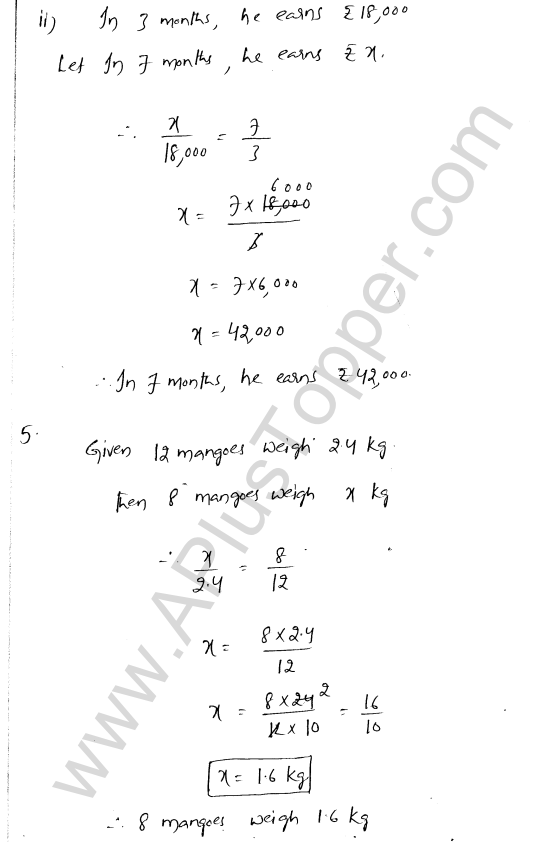 ii) In 3 months, he earns ₹18,000
Let In 7 months, he earns ₹ x.
∴ x/18,000 = 7/3
x = 7 × 18,000/3 6000
x = 7×6,000
x = 42,000
∴ In 7 months, he earns ₹42,000.
5. Given 12 mangoes weigh 2.4 kg.
then 8 mangoes weigh x kg
∴ x/2.4 = 8/12
x = 8 × 2.4/12
x = 8 × 24 2/12 × 10 = 16/10
x = 1.6 kg
∴ 8 mangoes weigh 1.6 kg
www.APlusTopper.com